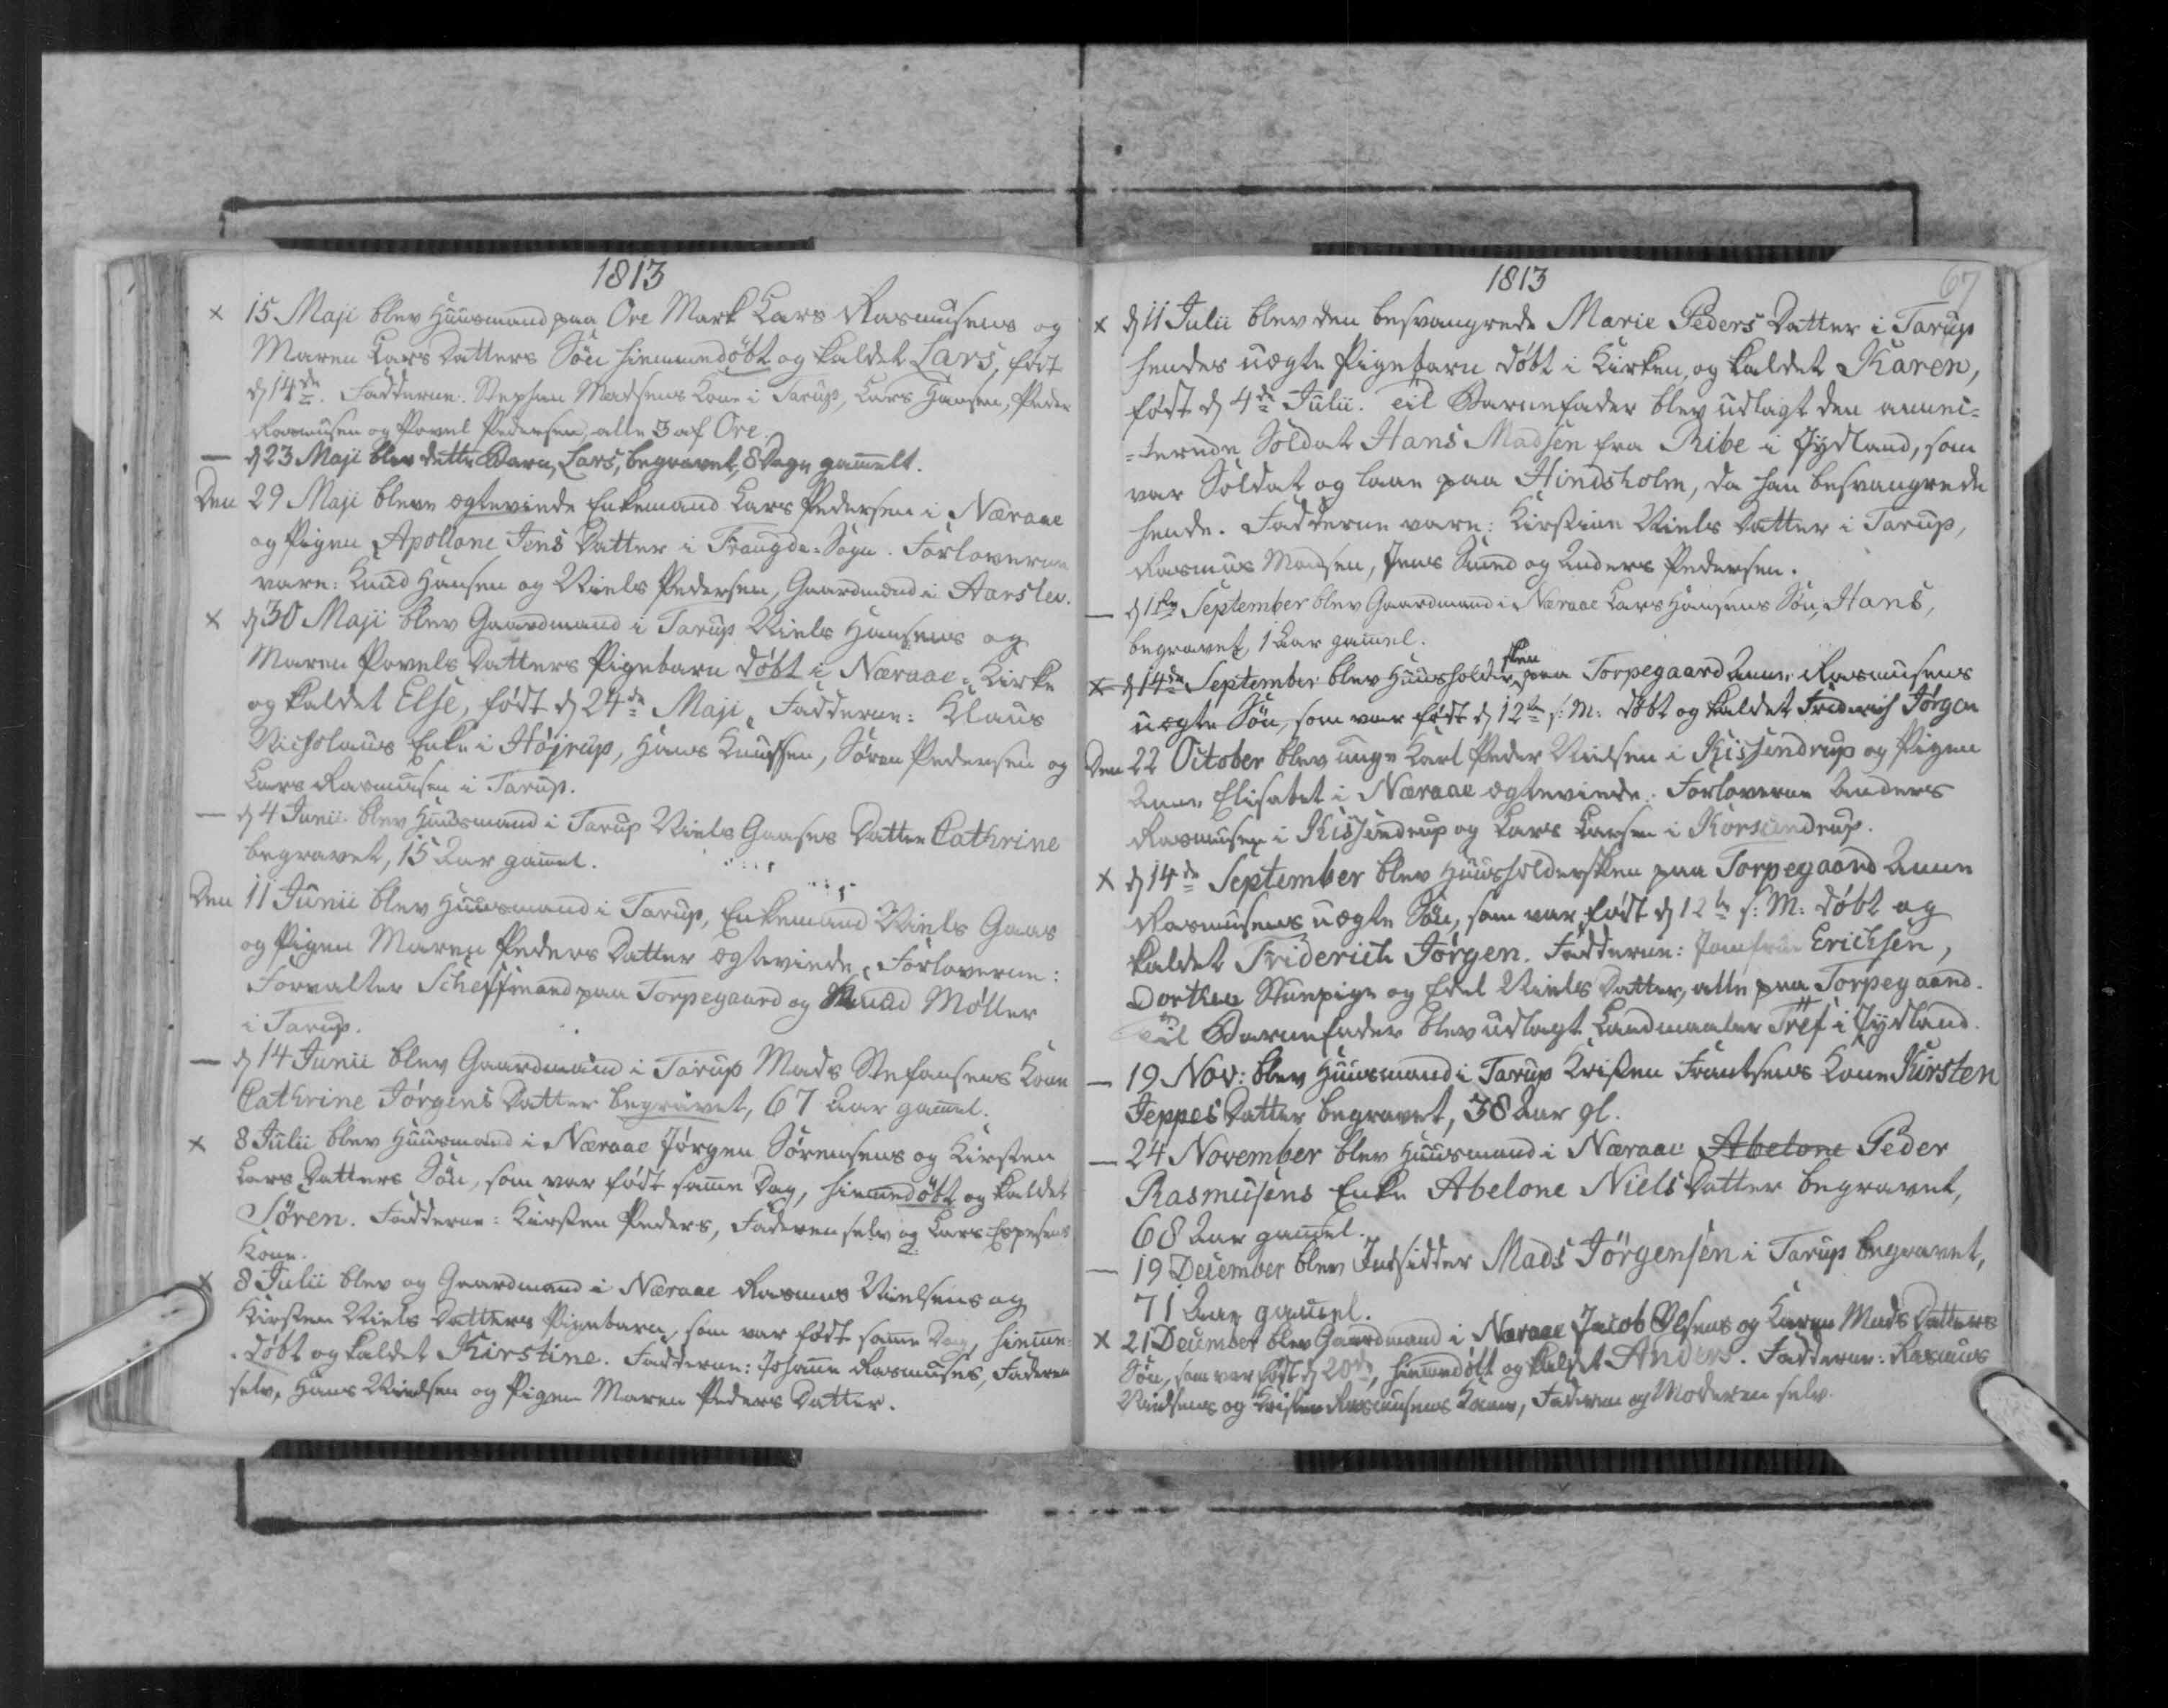 1813
× 15 Maji blev Huusmand paa Ore Mark Lars Rasmusens og
Maren Lars Datters Søn hiemmedøbt og kaldet Lars, født
d 14de. Fadderne: Stephen Madsens Kone i Tarup, Lars Hansen, Peder
Rasmusen og Povel Pedersen, alle 3 af Ore.
— d 23 Maji blev dette Barn, Lars, begravet, 8 Dage gammelt.
Den 29 Maji bleve ægteviede Enkemand Lars Pedersen i Næraae
og Pigen Apollone Jens Datter i Fraugde-Sogn. Forloverne
vare: Knud Hansen og Niels Pedersen, Gaardmænd i Aarslev.
× d 30 Maji blev Gaardmand i Tarup Niels Hansens og
Maren Povels Datters Pigebarn døbt i Næraae-Kirke
og kaldet Else, født d 24de Maji. Fadderne: Klaus
Nicholaus Enke i Højrup, Hans Knudsen, Søren Pedersen og
Lars Rasmusen i Tarup.
— d 4 Junii blev Huusmand i Tarup Niels Gaases Datter Cathrine
begravet, 15 Aar gammel.
Den 11 Junii blev Huusmand i Tarup, Enkemand Niels Gaas
og Pigen Maren Peders Datter ægteviede, Forloverne:
Forvalter Scheffmand paa Torpegaard og Knud Møller
i Tarup.
— d 14 Junii blev Gaardmand i Tarup Mads Stefansens Kone
Cathrine Jørgens Datter begravet, 67 Aar gammel.
× 8 Julii blev Huusmand i Næraae Jørgen Sørensens og Kirsten
Lars Datters Søn, som var født samme Dag, hiemmedøbt og kaldet
Søren. Fadderne: Kirsten Peders, Faderen selv og Lars Espesens
Kone.
× 8 Julii blev og Gaardmand i Næraae Rasmus Nielsens og
Kirsten Niels Datters Pigebarn, som var født samme Dag, hiemme-
-døbt og kaldet Kirstine. Fadderne: Johanne Rasmuses, Faderen
selv, Hans Nielsen og Pigen Maren Peders Datter.
1813
67
× d 11 Julii blev den besvangrede Marie Peders Datter i Tarup
hendes uægte Pigebarn døbt i Kirken, og kaldet Karen,
født d 4de Julii. Til Barnefader blev udlagt den
Soldat Hans Madsen fra Ribe i Jydland, som
var Soldat og laae paa Hindsholm, da han besvangrede
hende. Fadderne vare: Kirstine Niels Datter i Tarup,
Rasmus Madsen, Jens Smed og Anders Pedersen.
— d 1ste September blev Gaardmand i Næraae Lars Hansens Søn, Hans,
begravet, 1 Aar gammel.
× d 14de September blev Huusholdersken paa Torpegaard Anne Rasmusens
uægte Søn, som var født d 12te s: M: døbt og kaldet Friderich Jørgen
Den 22 October blev unge Karl Peder Nielsen i Kissendrup og Pigen
Anne Elisabet i Næraae ægteviede. Forloverne Anders
Rasmusen i Kissendrup og Lars Larsen i Korsendrup.
× d 14de September blev Huusholdersken paa Torpegaard Anne
Rasmusens uægte Søn, som var født d 12te s: M: døbt og
kaldet Friderich Jørgen. Fadderne: Jomfrue Erichsen,
Dorthea Stuepige og Edel Niels Datter, alle paa Torpegaard.
Til Barnefader blev udlagt Landmaaler Treff i Jydland.
— 19 Nov: blev Huusmand i Tarup Kristen Frantsens Kone Kirsten
Jeppes Datter begravet, 38 Aar gl.
— 24 November blev Huusmand i Næraae Abelone Peder
Rasmusens Enke Abelone Niels Datter begravet,
68 Aar gammel.
— 19 December blev Indsidder Mads Jørgensen i Tarup begravet,
71 Aar gammel.
× 21 December blev Gaardmand i Næraae Jacob Olsens og Karen Mads Datters
Søn, som var født d 20de, hiemmedøbt og kaldet Anders. Fadderne: Rasmus
Nielsens og Kristen Rasmusens Koner, Faderen og Moderen selv.